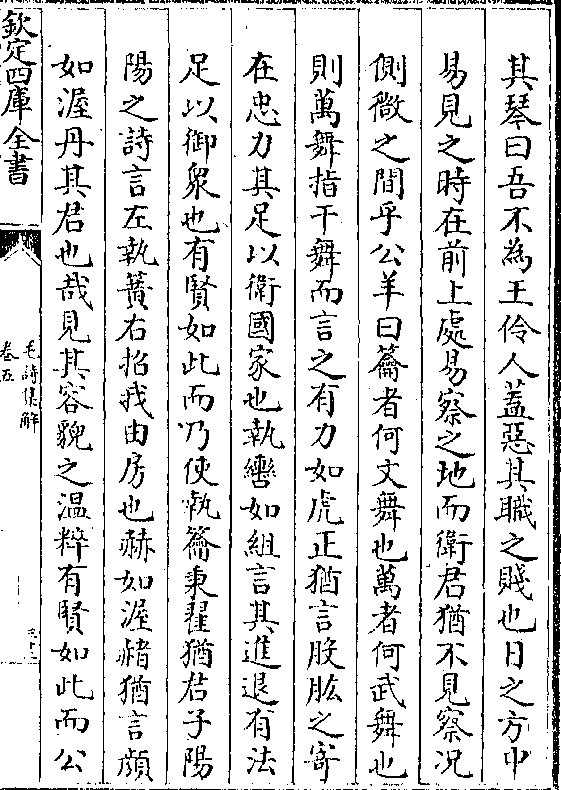 其琴曰吾不為王伶人蓋惡其職之賤也日之方中
易見之時在前上處易察之地而衛君猶不見察况
側微之間乎公羊曰籥者何文舞也萬者何武舞也
則萬舞指干舞而言之有力如虎正猶言股肱之寄
在忠力其足以衛國家也執轡如組言其進退有法
足以御衆也有賢如此而乃使執籥秉翟猶君子陽
陽之詩言左執簧右招我由房也赫如渥赭猶言顔
如渥丹其君也哉見其容貌之温粹有賢如此而公
欽定四庫全書
毛詩集解
卷五